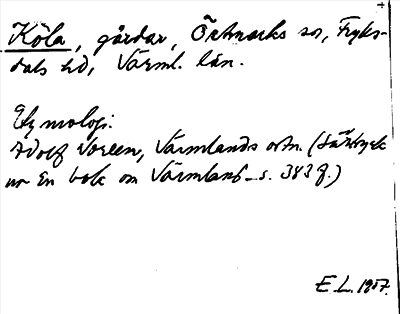 Köla, gårdar, Östmarks sn, Fryks-
dals hd, Värml. län.
Etymologi.
Adolf Noreen, Värmlands ortn. (Särtryck
ur En bok om Värmland _ s. 383 f.)
E. L. 1917.